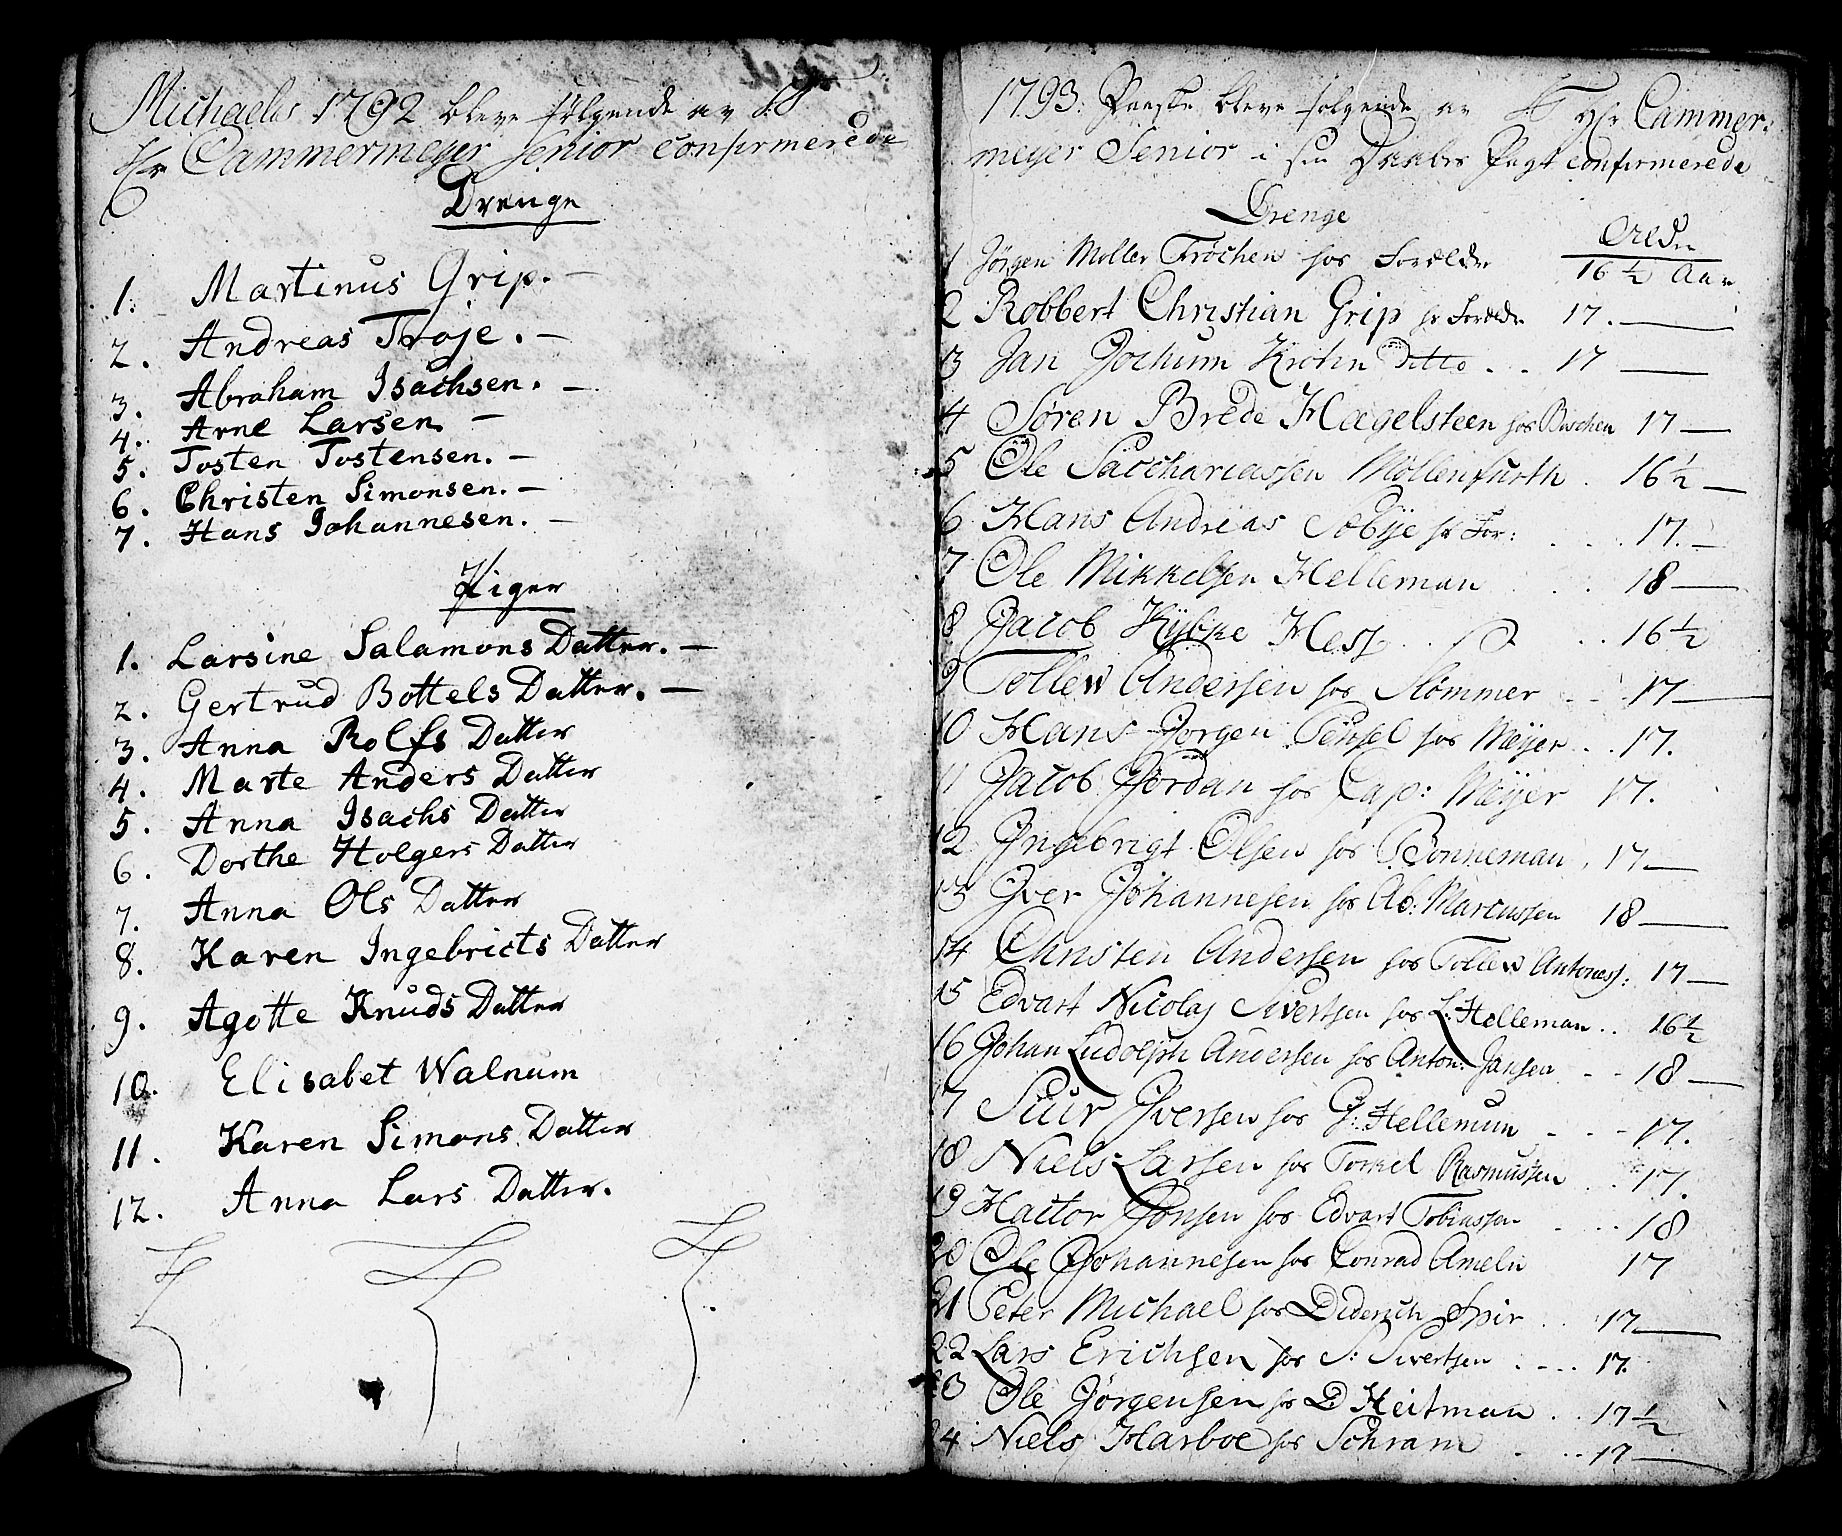 Michaelis 1792 bleve følgende av
Hr Cammermeyer Senior confirmerede
Drenge
1. Martinus Grip. —
2. Andreas Troje. —
3. Abraham Isachsen. —
4. Arne Larsen. —
5. Tosten Tostensen. —
6. Christen Simonsen. —
7. Hans Johannesen. —
Piger
1. Larsine Salamons Datter. —
2. Gertrud Bottels Datter. —
3. Anna Rolfs Datter
4. Marte Anders Datter
5. Anna Isachs Datter
6. Dorthe Holgers Datter
7. Anna Ols Datter
8. Karen Ingebricts Datter
9. Agotte Knuds Datter
10. Elisabet Walnum
11. Karen Simons Datter
12. Anna Lars Datter.
1793. Paaske bleve følgende av Hr Cammer:
meyer Senior i sin Daabes Pagt confirmerede
Drenge
Alder
1 Jørgen Moller Frøchen hos Forældr 16 ½ Aar
2 Robbert Christian Grip hr Forældr 17. —
3 Jan Jochum Krohn Ditto . . . 17 —
4 Søren Brede Hægelsteen hos Bischen 17 —
5 Ole Sacchariassen Møllenfurth . 16 ½ —
6 Hans Andreas Sæbye hr For: . . . 17. —
7 Ole Mikkelsen Helleman . . 18 —
8 Jacob Kybke Hess . . . . 16 ½
9 Tollew Andersen hos Slømmer . . . 17 —
10 Hans Jørgen Pensel hos Meyer . . . 17.
11 Jacob Jordan hos Cap: Meyer 17.
12 Ingebrigt Olsen hos Bonneman . 17 —
13 Iver Johannesen hos Ab: Marcussen 18 —
14 Christen Andersen hos Tollew Antoness: 17 —
15 Edvart Nicolaj Sivertsen hos L: Helleman . . 16 ½
16 Johan Ludolph Andersen hos Anton: Jansen - - 18 —
17 Siur Iversen hos J: Hellemun - - - 17.
18 Niels Larsen hos Torkel Rasmussen . . 17.
19 Hactor Jonsen hos Edvart Tobiassen . . . . 18
20 Ole Johannesen hos Conrad Ameln 17
21 Peter Michael hos Diderich Spir . . 17 —
22 Lars Erichsen hos S: Sivertsen . - - . 17.
23 Ole Jørgensen hos D Heitman . . 17 ½
24 Niels Harboe hos Schram . . . 17 —